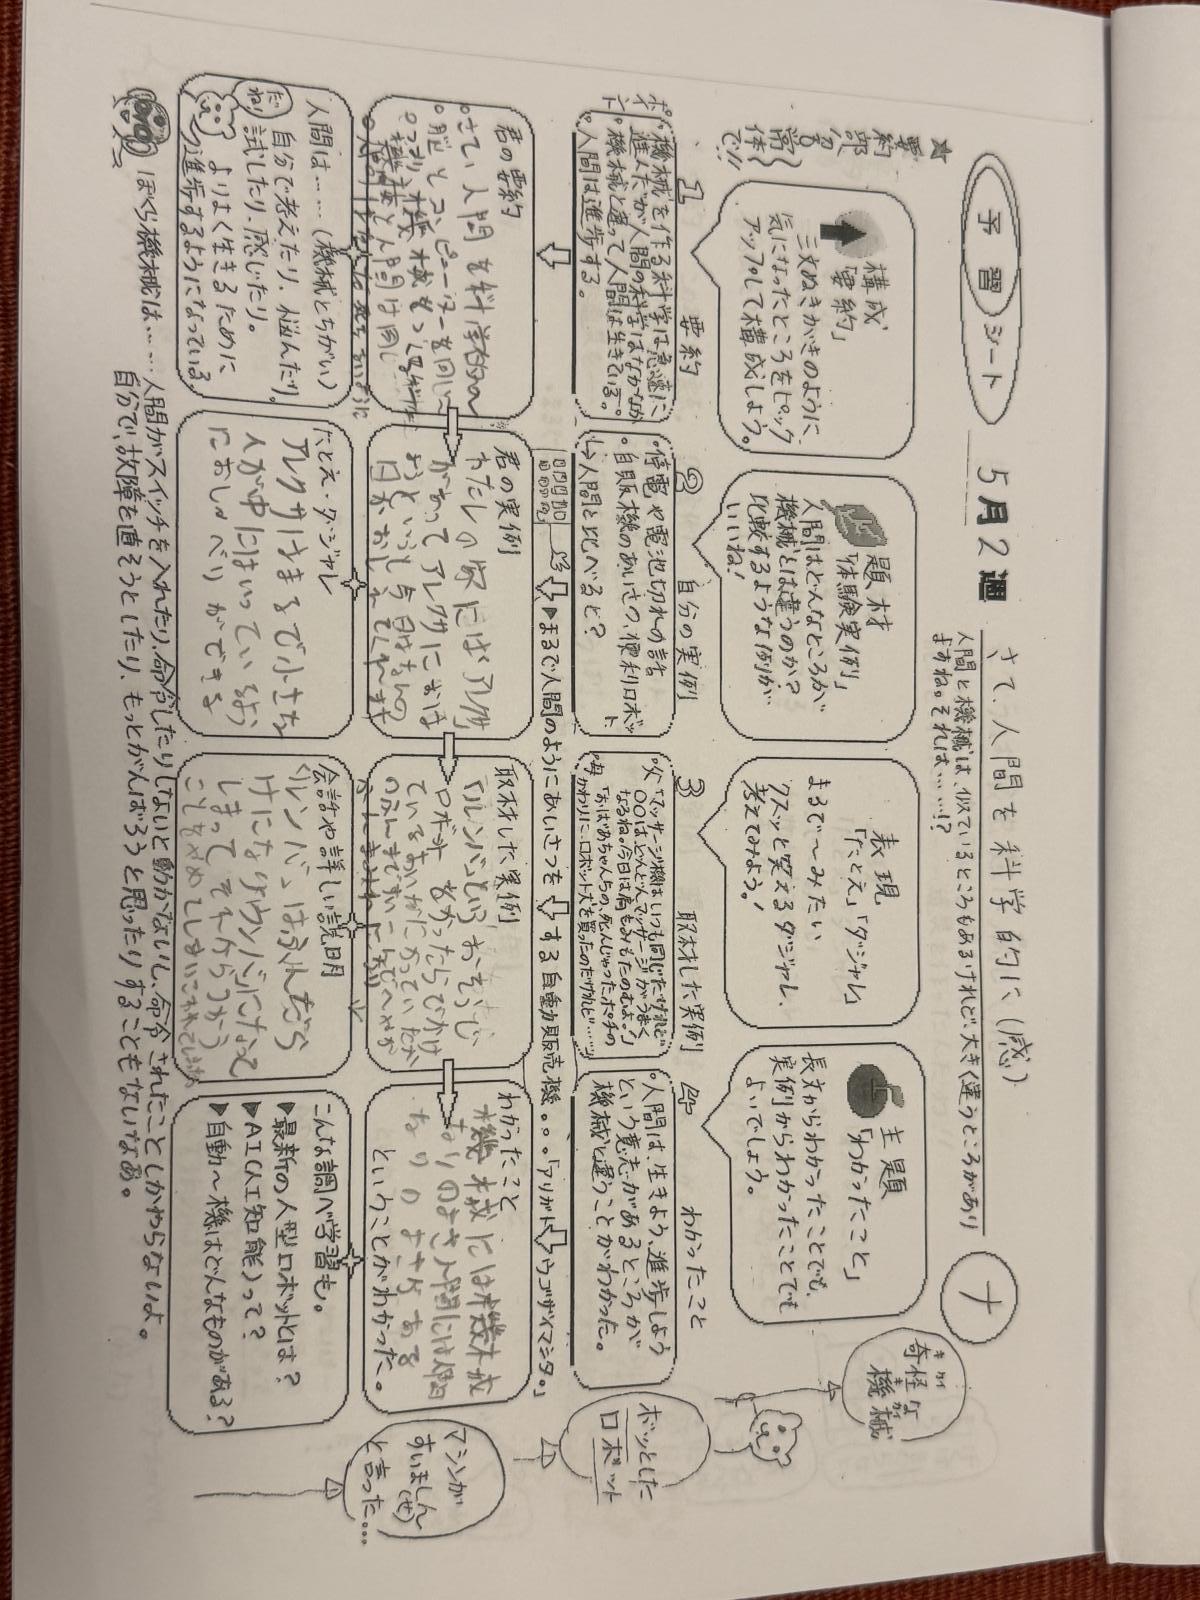 予習シート
5月2週
さて、人間を科学的に(感)
ナ
人間と機械は、似ているところもあるけれど、大きく違うところがあり
ますね。それは……!?
★要約部分の
常体で!!
構成
「要約」
三文ぬきがきのように、
気になったところをピック
アップして構成しよう。
題材
「体験実例」
人間はどんなところが
機械とは違うのか?
比較するような例が
いいね!
表現
「たとえ」「ダジャレ」
まるで〜みたい
クスッと笑えるダジャレ、
考えてみよう!
主題
「わかったこと」
長文からわかったことでも、
実例からわかったことでも
よいでしょう。
奇怪な
機械
1 要約
ポイント
。機械を作る科学は急速に
進んだが人間の科学はなかなか。
。機械と違って人間は生きている。
。人間は進歩する。
2 自分の実例
・停電や電池切れの話
・自販機のあいさつ、便利ロボット
↳人間と比べると?
3 取材した実例
父「マッサージ機はいつも同じだけれど
〇〇はどんどんマッサージがうまく
なるね。今日は肩もみもたのむよ。」
母「おばあちゃんちの、死んじゃったポチの
かわりに、ロボット犬を買ったのだけれど……」
4 わかったこと
。人間は、生きよう、進歩しよう
という意志があるところが
機械と違うことがわかった。
ボッとした
ロボット
▶まるで人間のようにあいさつをする自動販売機。。。「アリガトウゴザイマシタ。」
君の要約
。さてい人間を科学的に〜
。脳とコンピューターを同じ〜
君の実例
わたしの家にはアレクサ
があってアレクサにおは
ようというと今日はなんの
日かおしえてくれます
取材した実例
「ルンバ」という おそうじ
ロボット
わかったこと
機械には機械
なりのよさ人間には人間
なりのよさがある
ということがわかった。
マシンが
すいましん
(せ)
と言った…
人間は……(機械とちがい)
自分で考えたり、悩んだり、
試したり、感じたり。
よりよく生きるために
進歩するようになっている。
だね
たとえ・ダジャレ
アレクサはまるで小さな
人が中にはいっているよう
におしゃべりができる
会話や詳しい説明
こんな調べ学習も。
▶最新の人型ロボットとは?
▶AI(人工知能)って?
▶自動〜機はどんなものがある?
ぼくら機械は……人間がスイッチを入れたり、命令したりしないと動かないし、命令されたことしかやらないよ。
自分で、故障を直そうとしたり、もっとがんばろうと思ったりすることもないなあ。